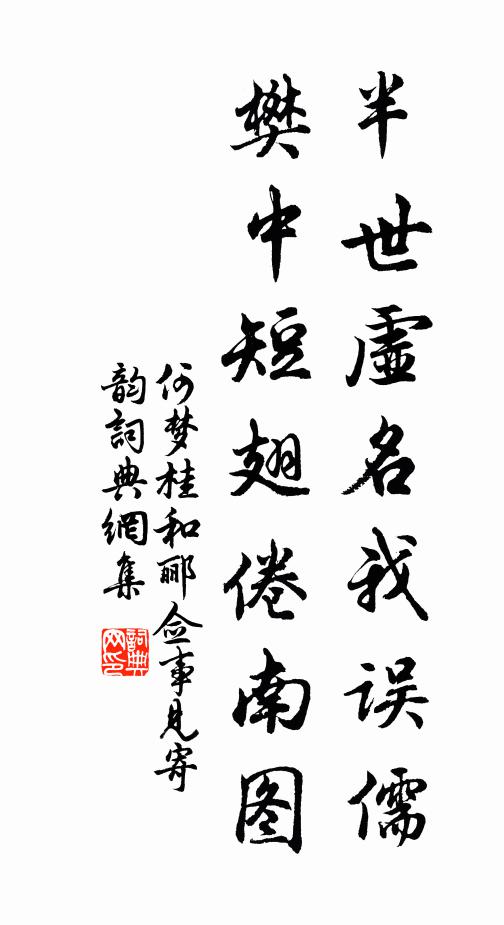 半世虚名我误儒
樊中短翅倦南图
何梦桂和郦佥事见寄
韵詞典網集
詞典
网印